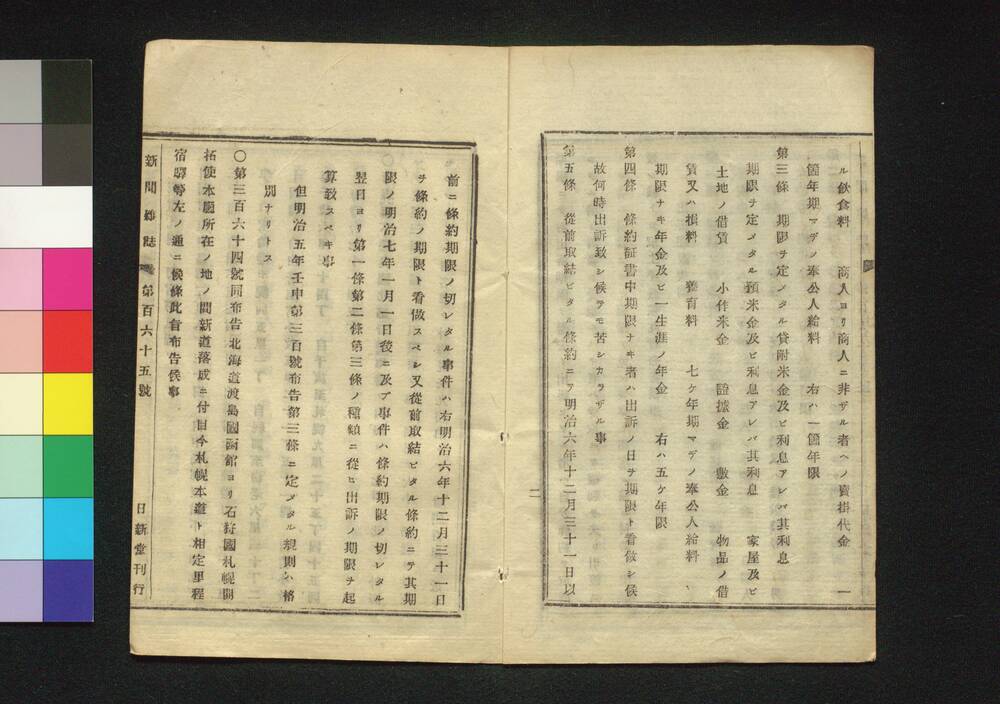 ル飲食料 商人ヨリ商人ニ非ザル者ヘノ賣掛代金 一
箇年期マデノ奉公人給料 右ハ一箇年限
第三條 期限ヲ定メタル貸附米金及ビ利息アレバ其利息
期限ヲ定メタル預米金及ビ利息アレバ其利息 家屋及ビ
土地ノ借賃 小作米金 證據金 敷金 物品ノ借
賃又ハ損料 養育料 七ケ年期マデノ奉公人給料
期限ナキ年金及ビ一生涯ノ年金 右ハ五ケ年限
第四條 條約証書中期限ナキ者ハ出訴ノ日ヲ期限ト看做シ候
故何時出訴致シ候テモ苦シカラザル事
第五條 從前取結ビタル條約ニテ明治六年十二月三十一日以
二
前ニ條約期限ノ切レタル事件ハ右明治六年十二月三十一日
ヲ條約ノ期限ト看做スベシ又從前取結ビタル條約ニテ其期
限ノ明治七年一月一日後ニ及ブ事件ハ條約期限ノ切レタル
翌日ヨリ第一條第二條第三條ノ種類ニ從ヒ出訴ノ期限ヲ起
算致スベキ事
但明治五年壬申第三百號布告第三條ニ定メタル規則ハ格
別ナリトス
〇第三百六十四號同布告北海道渡島國函館ヨリ石狩國札幌開
拓使本廳所在ノ地ノ間新道落成ニ付自今札幌本道ト相定里程
宿驛等左ノ通ニ候條此旨布告候事
新聞雜誌 第百六十五號
日新堂刊行